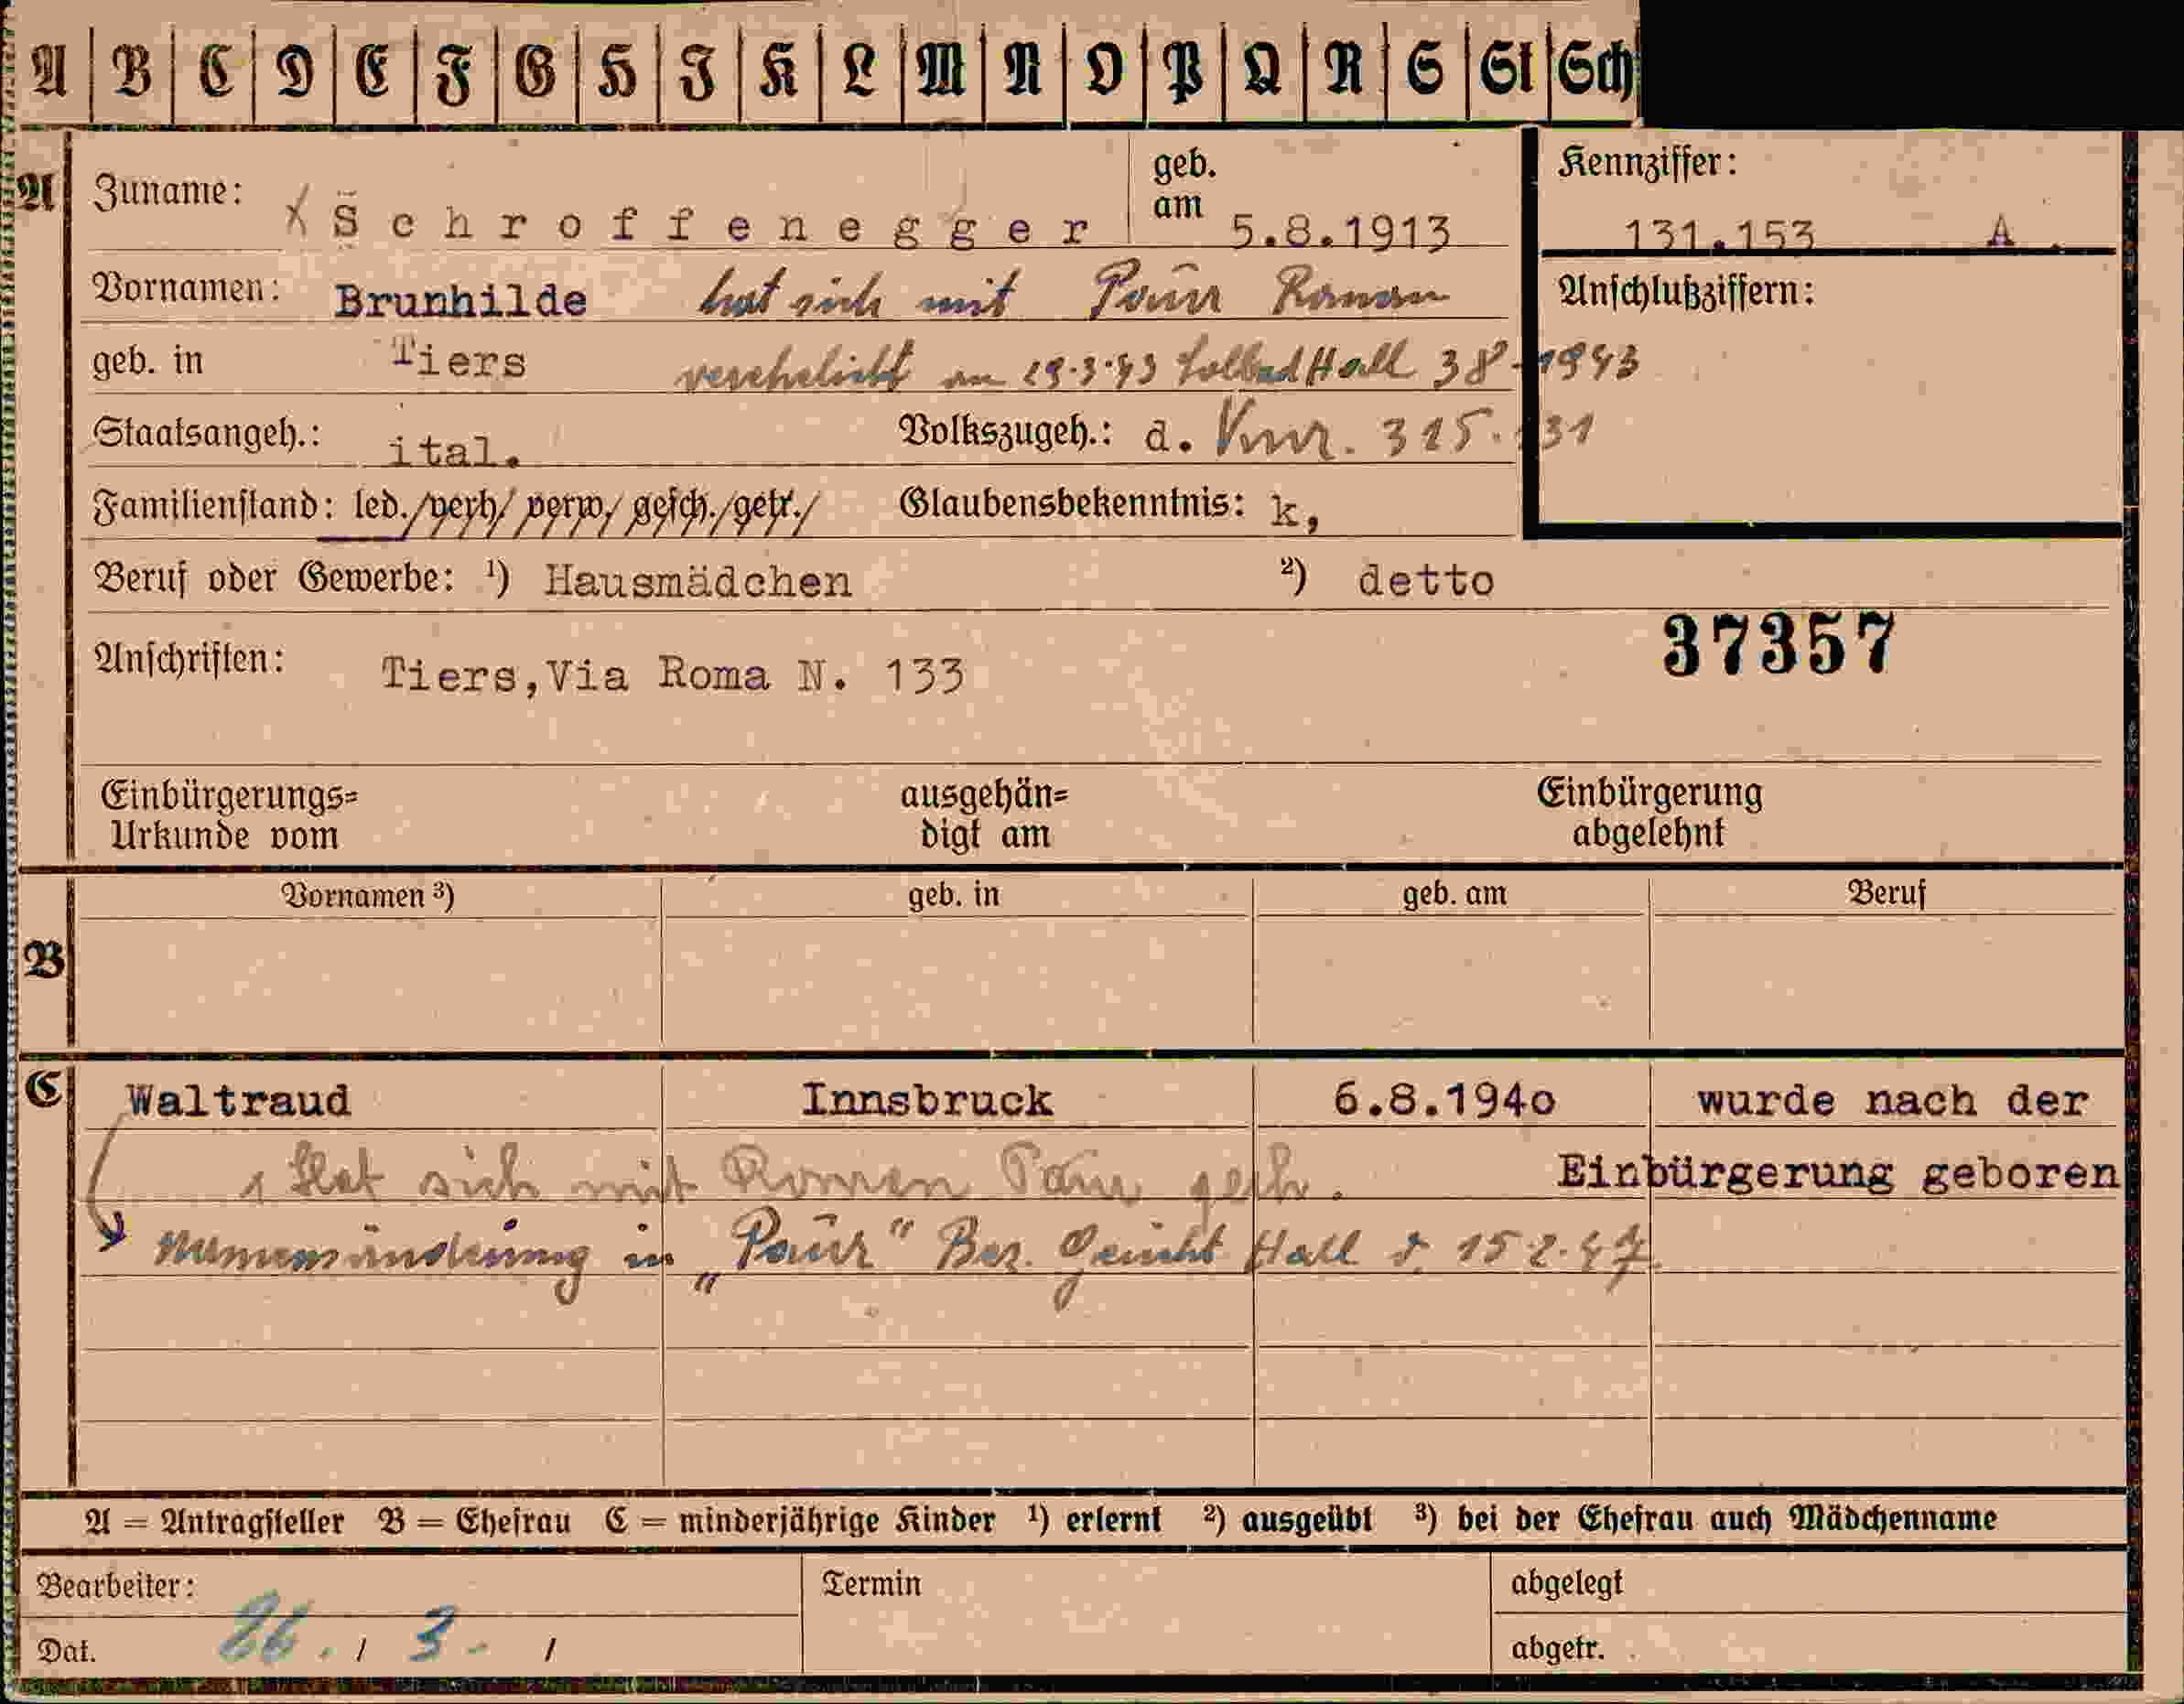 A B C D E F G H I K L M N O P Q R S St Sch
A Zuname: S c h r o f f e n e g g e r geb. am 5.8.1913 Kennziffer: 131.153 A.
Vornamen: Brunhilde hat sich mit Paur Roman Anschlußziffern:
geb. in Tiers verehelicht am 29.3.43 Solbad Hall 38-1943
Staatsangeh.: ital. Volkszugeh.: d. 315.131
Familienstand: led./verh/ verw/ gesch./getr./ Glaubensbekenntnis: k,
Beruf oder Gewerbe: ¹) Hausmädchen ²) detto
37357
Anschriften: Tiers,Via Roma N. 133
Einbürgerungs= Urkunde vom ausgehän= digt am Einbürgerung abgelehnt
B Vornamen ³) geb. in geb. am Beruf
C Waltraud Innsbruck 6.8.194o wurde nach der
Hat sich mit Roman Paur Einbürgerung geboren
Namensänderung in „Paur" Bez. Gericht Hall 15.2.47
A = Antragsteller B = Ehefrau C = minderjährige Kinder ¹) erlernt ²) ausgeübt ³) bei der Ehefrau auch Mädchenname
Bearbeiter: Termin abgelegt
Dat. 26. / 3. / abgetr.